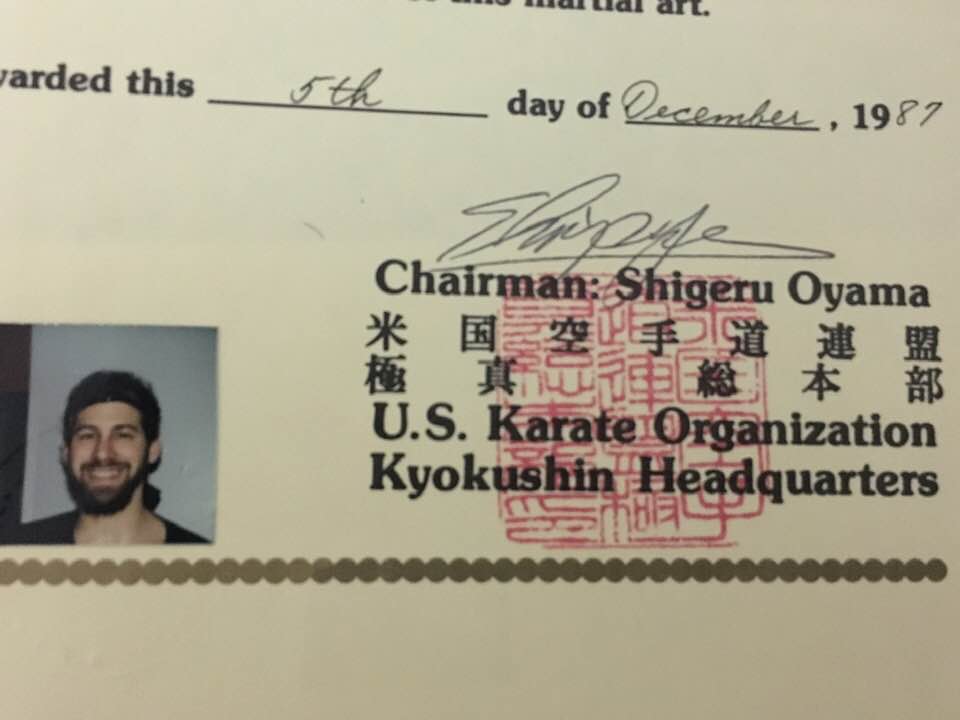 this martial art.
warded this 5th day of December, 1987
Chairman: Shigeru Oyama
米国空手道連盟
極真 総本部
U.S. Karate Organization
Kyokushin Headquarters